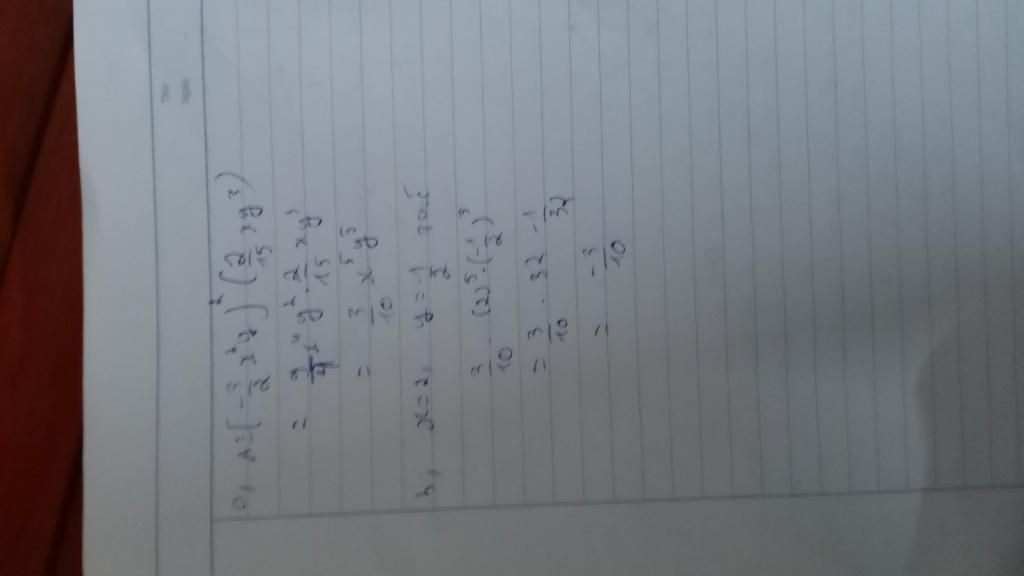 a, A=(-3/2 x²y)² (2/15 xy³)
= 9/4 x⁴y² 2/15 xy³
= 3/10 x⁵y⁵
b, x=2, y=-1/2
3/10 . (2)⁵ . (-1/2)⁵
= 3/10 . 32 . -1/32
= -3/10